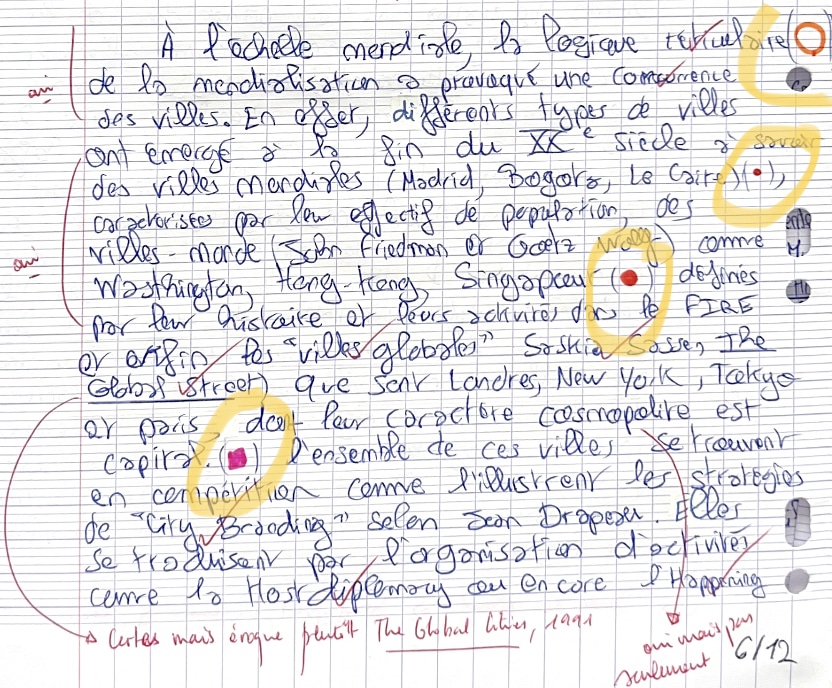 À l'échelle mondiale, la logique réticulaire (
oui
de la mondialisation a provoqué une concurrence
des villes. En effet, différents types de villes
ont émergé à la fin du XXe siècle à savoir
des villes mondiales (Madrid, Bogota, Le Caire) (•),
caractérisées par leur effectif de population, des
oui
villes-monde (John Friedman et Goetz Wolff) comme
Wasthington, Hong-Kong, Singapour (•) définies
par leur histoire et leurs activités dans le FIRE
et enfin les "villes globales" Saskia Sassen, The
Global Street) que sont Londres, New York, Tokyo
et Paris, dont leur caractère cosmopolite est
capital. (■) L'ensemble de ces villes, se trouvent
en compétition comme l'illustrent les stratégies
de "City Branding" selon Jean Drapeau. Elles
se traduisent par l'organisation d'activités
comme la Host diplomacy ou encore l'Happening
→ Certes mais évoque plutôt The Global Cities, 1991
oui mais pas
seulement
6/12